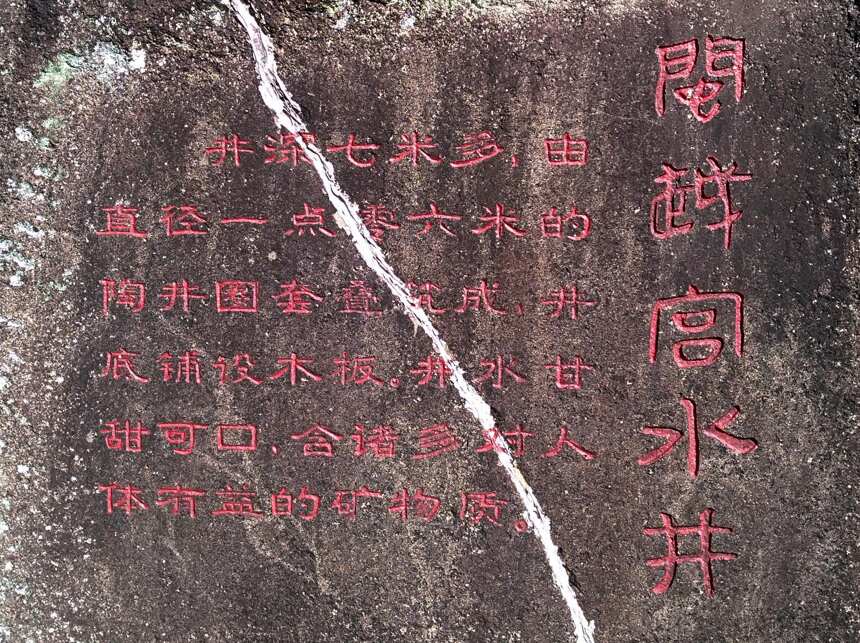 閩越宫水井
井深七米多,由
直径一点零六米的
陶井圈套叠筑成,井
底铺设木板。井水甘
甜可口,含诸多对人
体有益的矿物质。